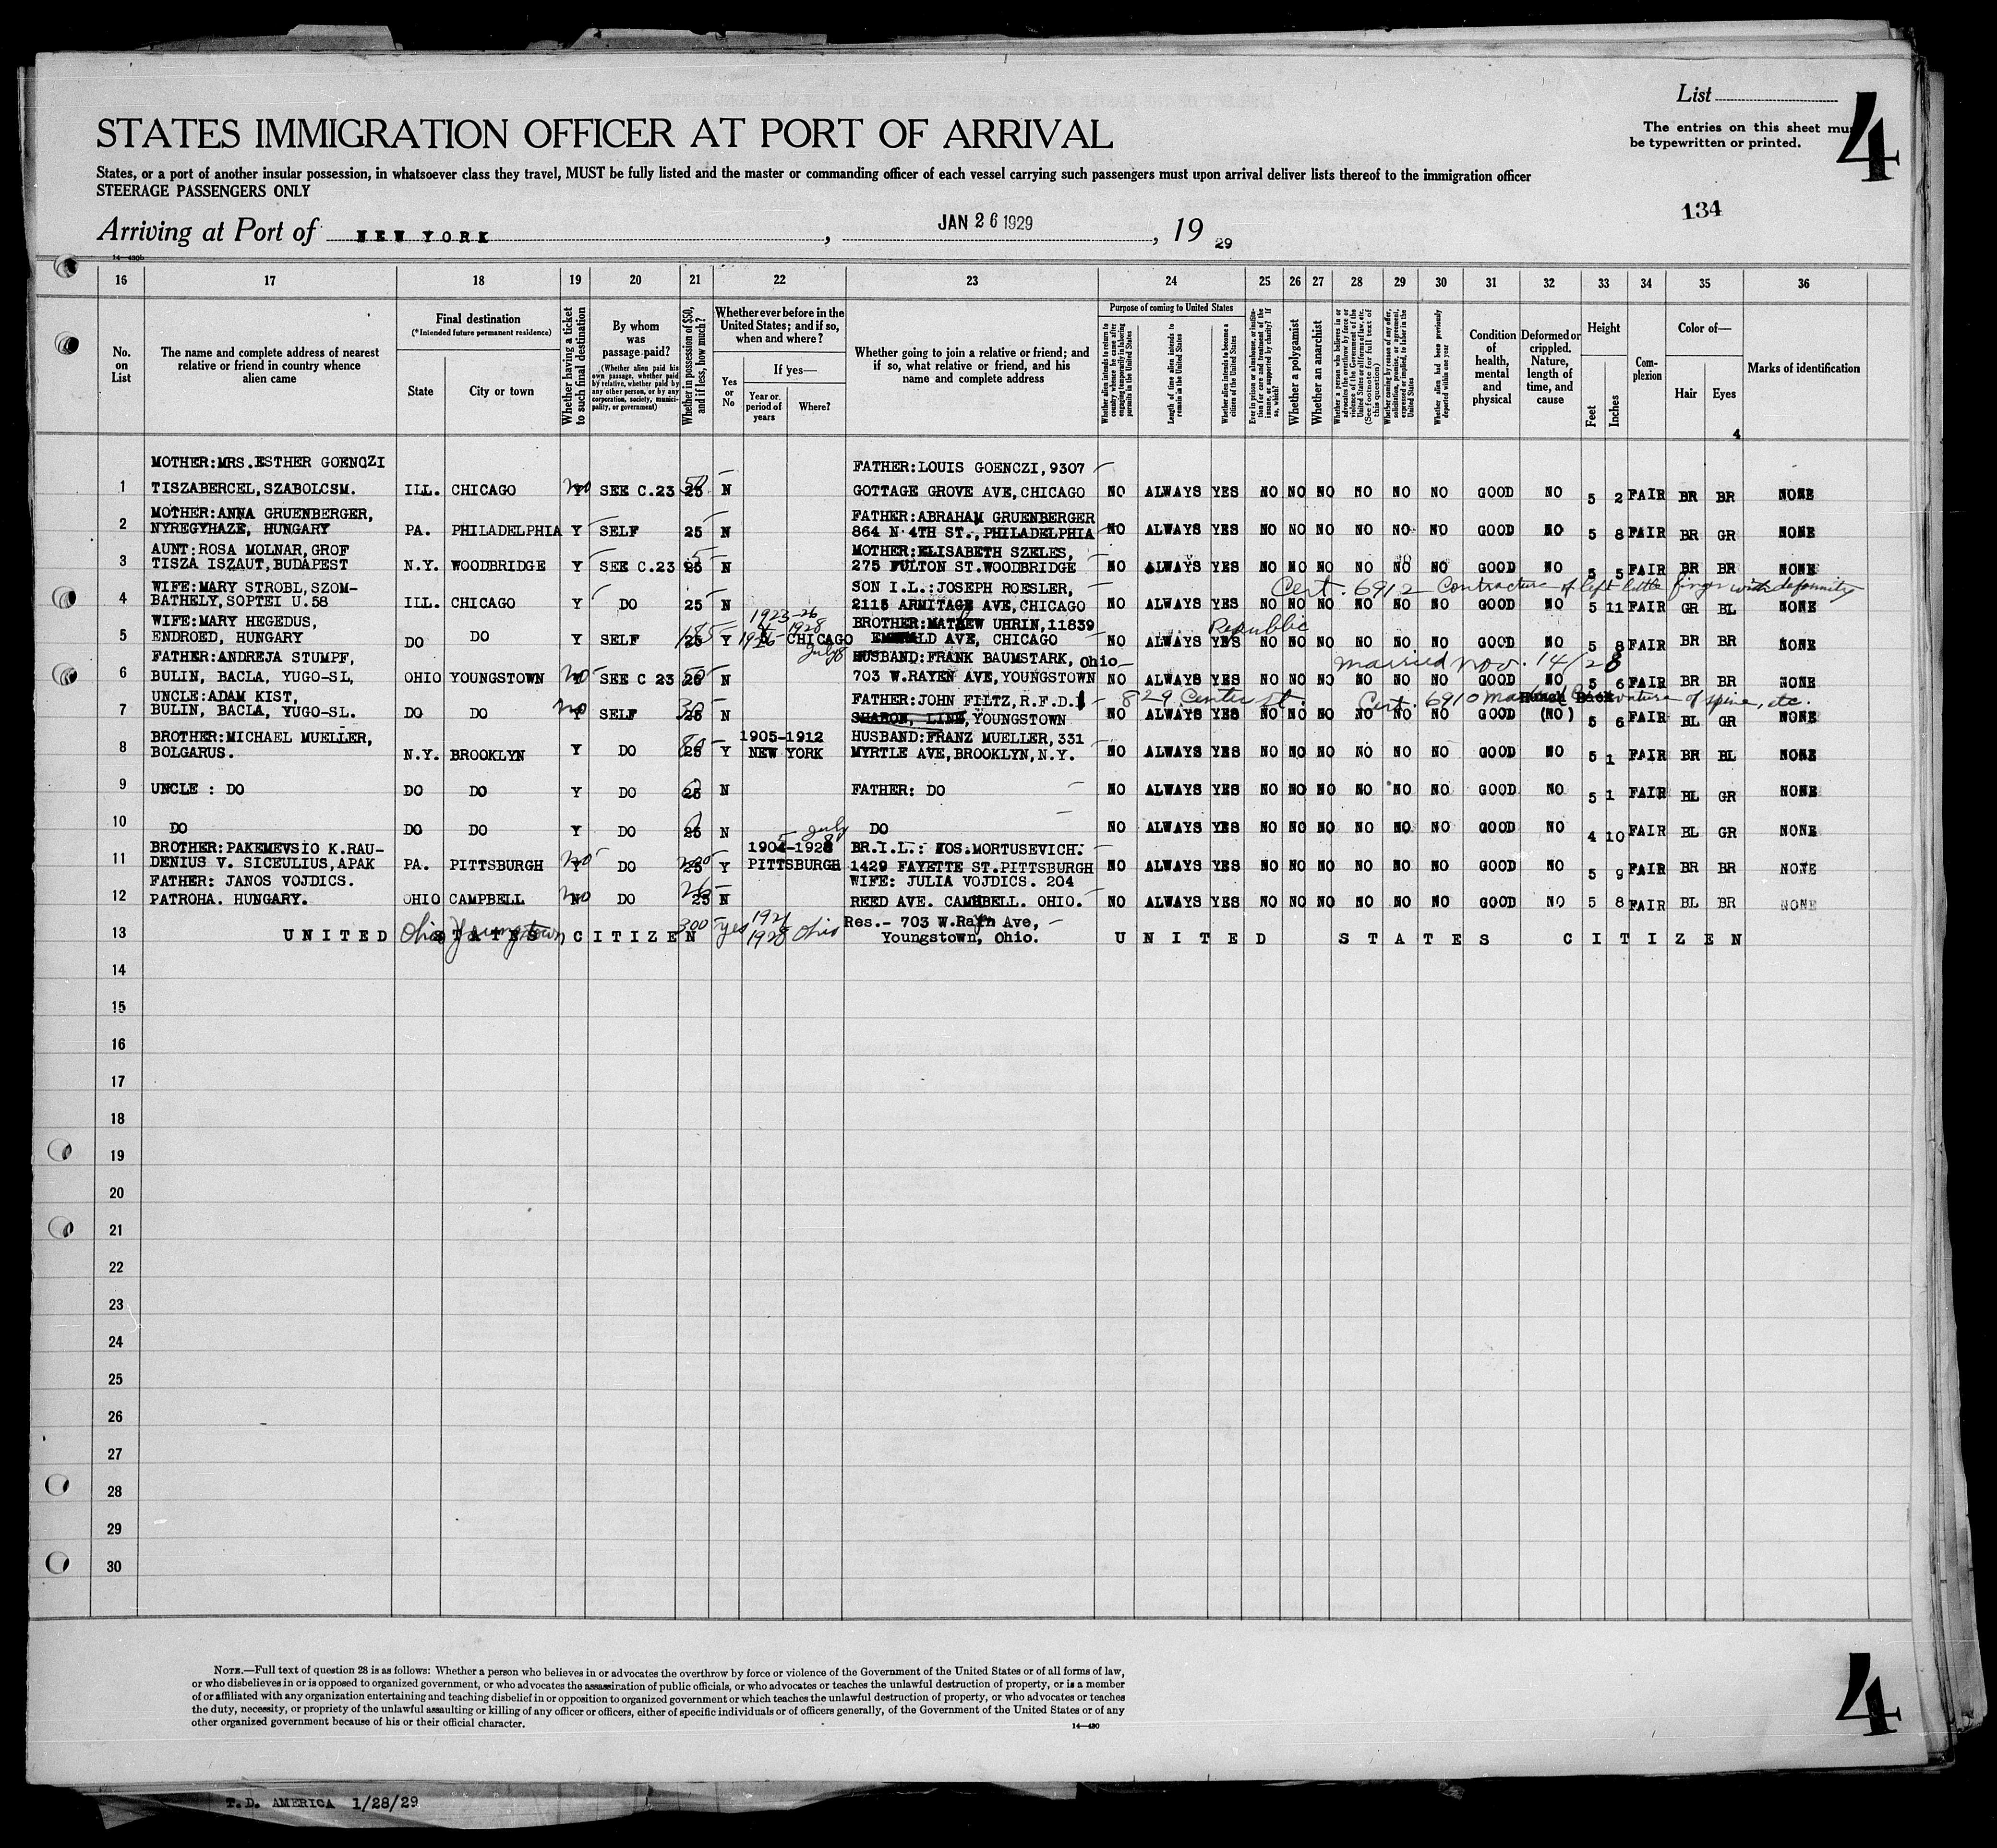 List
4
The entries on this sheet must
be typewritten or printed.
STATES IMMIGRATION OFFICER AT PORT OF ARRIVAL
States, or a port of another insular possession, in whatsoever class they travel, MUST be fully listed and the master or commanding officer of each vessel carrying such passengers must upon arrival deliver lists thereof to the immigration officer
STEERAGE PASSENGERS ONLY
134
Arriving at Port of NEW YORK , JAN 26 1929 , 19 29
14—430b
16 17 18 19 20 21 22 23 24 25 26 27 28 29 30 31 32 33 34 35 36
No. on List
The name and complete address of nearest relative or friend in country whence alien came
Final destination
(*Intended future permanent residence)
State
City or town
Whether having a ticket to such final destination
By whom was passage paid?
(Whether alien paid his own passage, whether paid by relative, whether paid by any other person, or by any corporation, society, municipality, or government)
Whether in possession of $50, and if less, how much?
Whether ever before in the United States; and if so, when and where?
Yes or No
If yes—
Year or period of years
Where?
Whether going to join a relative or friend; and if so, what relative or friend, and his name and complete address
Purpose of coming to United States
Whether alien intends to return to country whence he came after engaging temporarily in laboring pursuits in the United States
Length of time alien intends to remain in the United States
Whether alien intends to become a citizen of the United States
Ever in prison or almshouse, or institution for care and treatment of the insane, or supported by charity? If so, which?
Whether a polygamist
Whether an anarchist
Whether a person who believes in or advocates the overthrow by force or violence of the Government of the United States or all forms of law, etc. (See footnote for full text of this question)
Whether coming by reason of any offer, solicitation, promise, or agreement, expressed or implied, to labor in the United States
Whether alien had been previously deported within one year
Condition of health, mental and physical
Deformed or crippled. Nature, length of time, and cause
Height
Feet
Inches
Complexion
Color of—
Hair
Eyes
Marks of identification
4
MOTHER:MRS.ESTHER GOENCZI FATHER:LOUIS GOENCZI,9307
1 TISZABERCEL,SZABOLCSM. ILL. CHICAGO no SEE C.23 50 25 N GOTTAGE GROVE AVE,CHICAGO NO ALWAYS YES NO NO NO NO NO NO GOOD NO 5 2 FAIR BR BR NONE
MOTHER:ANNA GRUENBERGER, FATHER:ABRAHAM GRUENBERGER
2 NYREGYHAZE, HUNGARY PA. PHILADELPHIA Y SELF 25 N 864 N.4TH ST.,PHILADELPHIA NO ALWAYS YES NO NO NO NO NO NO GOOD NO 5 8 FAIR BR GR NONE
AUNT:ROSA MOLNAR,GROF MOTHER:ELISABETH SZELES,
3 TISZA ISZAUT,BUDAPEST N.Y. WOODBRIDGE Y SEE C.23 25 N 275 FULTON ST.WOODBRIDGE NO ALWAYS YES NO NO NO NO NO NO GOOD NO 5 5 FAIR BR BR NONE
WIFE:MARY STROBL,SZOM- SON I.L.:JOSEPH ROESLER, Cert. 6912 Contracture of left little finger with deformity
4 BATHELY,SOPTEI U.58 ILL. CHICAGO Y DO 25 N 2115 ARMITAGE AVE,CHICAGO NO ALWAYS YES NO NO NO NO NO NO GOOD NO 5 11 FAIR GR BL NONE
WIFE:MARY HEGEDUS, 1923-26 BROTHER:MATHEW UHRIN,11839 Republic
5 ENDROED, HUNGARY DO DO Y SELF 25 Y 1926 1928 CHICAGO July EMERALD AVE, CHICAGO NO ALWAYS YES NO NO NO NO NO NO GOOD NO 5 8 FAIR BR BR NONE
FATHER:ANDREJA STUMPF, HUSBAND:FRANK BAUMSTARK, Ohio married nov. 14/28
6 BULIN, BACLA, YUGO-SL, OHIO YOUNGSTOWN no SEE C 23 50 25 N 703 W.RAYEN AVE,YOUNGSTOWN NO ALWAYS YES NO NO NO NO NO NO GOOD NO 5 6 FAIR BR BR NONE
UNCLE:ADAM KIST, FATHER:JOHN FILTZ,R.F.D.1 829 Center St. Cert. 6910 of spine, etc.
7 BULIN, BACLA, YUGO-SL. DO DO no Y SELF 30 25 N SHARON, LINE,YOUNGSTOWN NO ALWAYS YES NO NO NO NO NO NO GOOD (NO) 5 6 FAIR BL GR NONE
BROTHER:MICHAEL MUELLER, 1905-1912 HUSBAND:FRANZ MUELLER,331
8 BOLGARUS. N.Y. BROOKLYN Y DO 25 Y NEW YORK MYRTLE AVE,BROOKLYN,N.Y. NO ALWAYS YES NO NO NO NO NO NO GOOD NO 5 1 FAIR BR BL NONE
9 UNCLE : DO DO DO Y DO 25 N FATHER: DO NO ALWAYS YES NO NO NO NO NO NO GOOD NO 5 1 FAIR BL GR NONE
10 DO DO DO Y DO 25 N DO NO ALWAYS YES NO NO NO NO NO NO GOOD NO 4 10 FAIR BL GR NONE
BROTHER:PAKEMEVSIO K.RAU- July 1904-1928 BR.I.L.: MORTUSEVICH.
11 DENIUS V. SICEULIUS,APAK PA. PITTSBURGH no Y DO 25 Y PITTSBURGH 1429 FAYETTE ST.PITTSBURGH NO ALWAYS YES NO NO NO NO NO NO GOOD NO 5 9 FAIR BR BR NONE
FATHER: JANOS VOJDICS. WIFE: JULIA VOJDICS. 204
12 PATROHA. HUNGARY. OHIO CAMPBELL no DO 25 N REED AVE. CAMPBELL. OHIO. NO ALWAYS YES NO NO NO NO NO NO GOOD NO 5 8 FAIR BL BR NONE
Res.- 703 W.Rayn Ave,
13 UNITED STATES CITIZEN Ohio Youngstown 300 yes 1921 1928 Ohio Youngstown, Ohio. UNITED STATES CITIZEN
14
15
16
17
18
19
20
21
22
23
24
25
26
27
28
29
30
NOTE.—Full text of question 28 is as follows: Whether a person who believes in or advocates the overthrow by force or violence of the Government of the United States or of all forms of law,
or who disbelieves in or is opposed to organized government, or who advocates the assassination of public officials, or who advocates or teaches the unlawful destruction of property, or is a member
of or affiliated with any organization entertaining and teaching disbelief in or opposition to organized government or which teaches the unlawful destruction of property, or who advocates or teaches
the duty, necessity, or propriety of the unlawful assaulting or killing of any officer or officers, either of specific individuals or of officers generally, of the Government of the United States or of any
other organized government because of his or their official character.
14—430
4
T.D. AMERICA 1/28/29